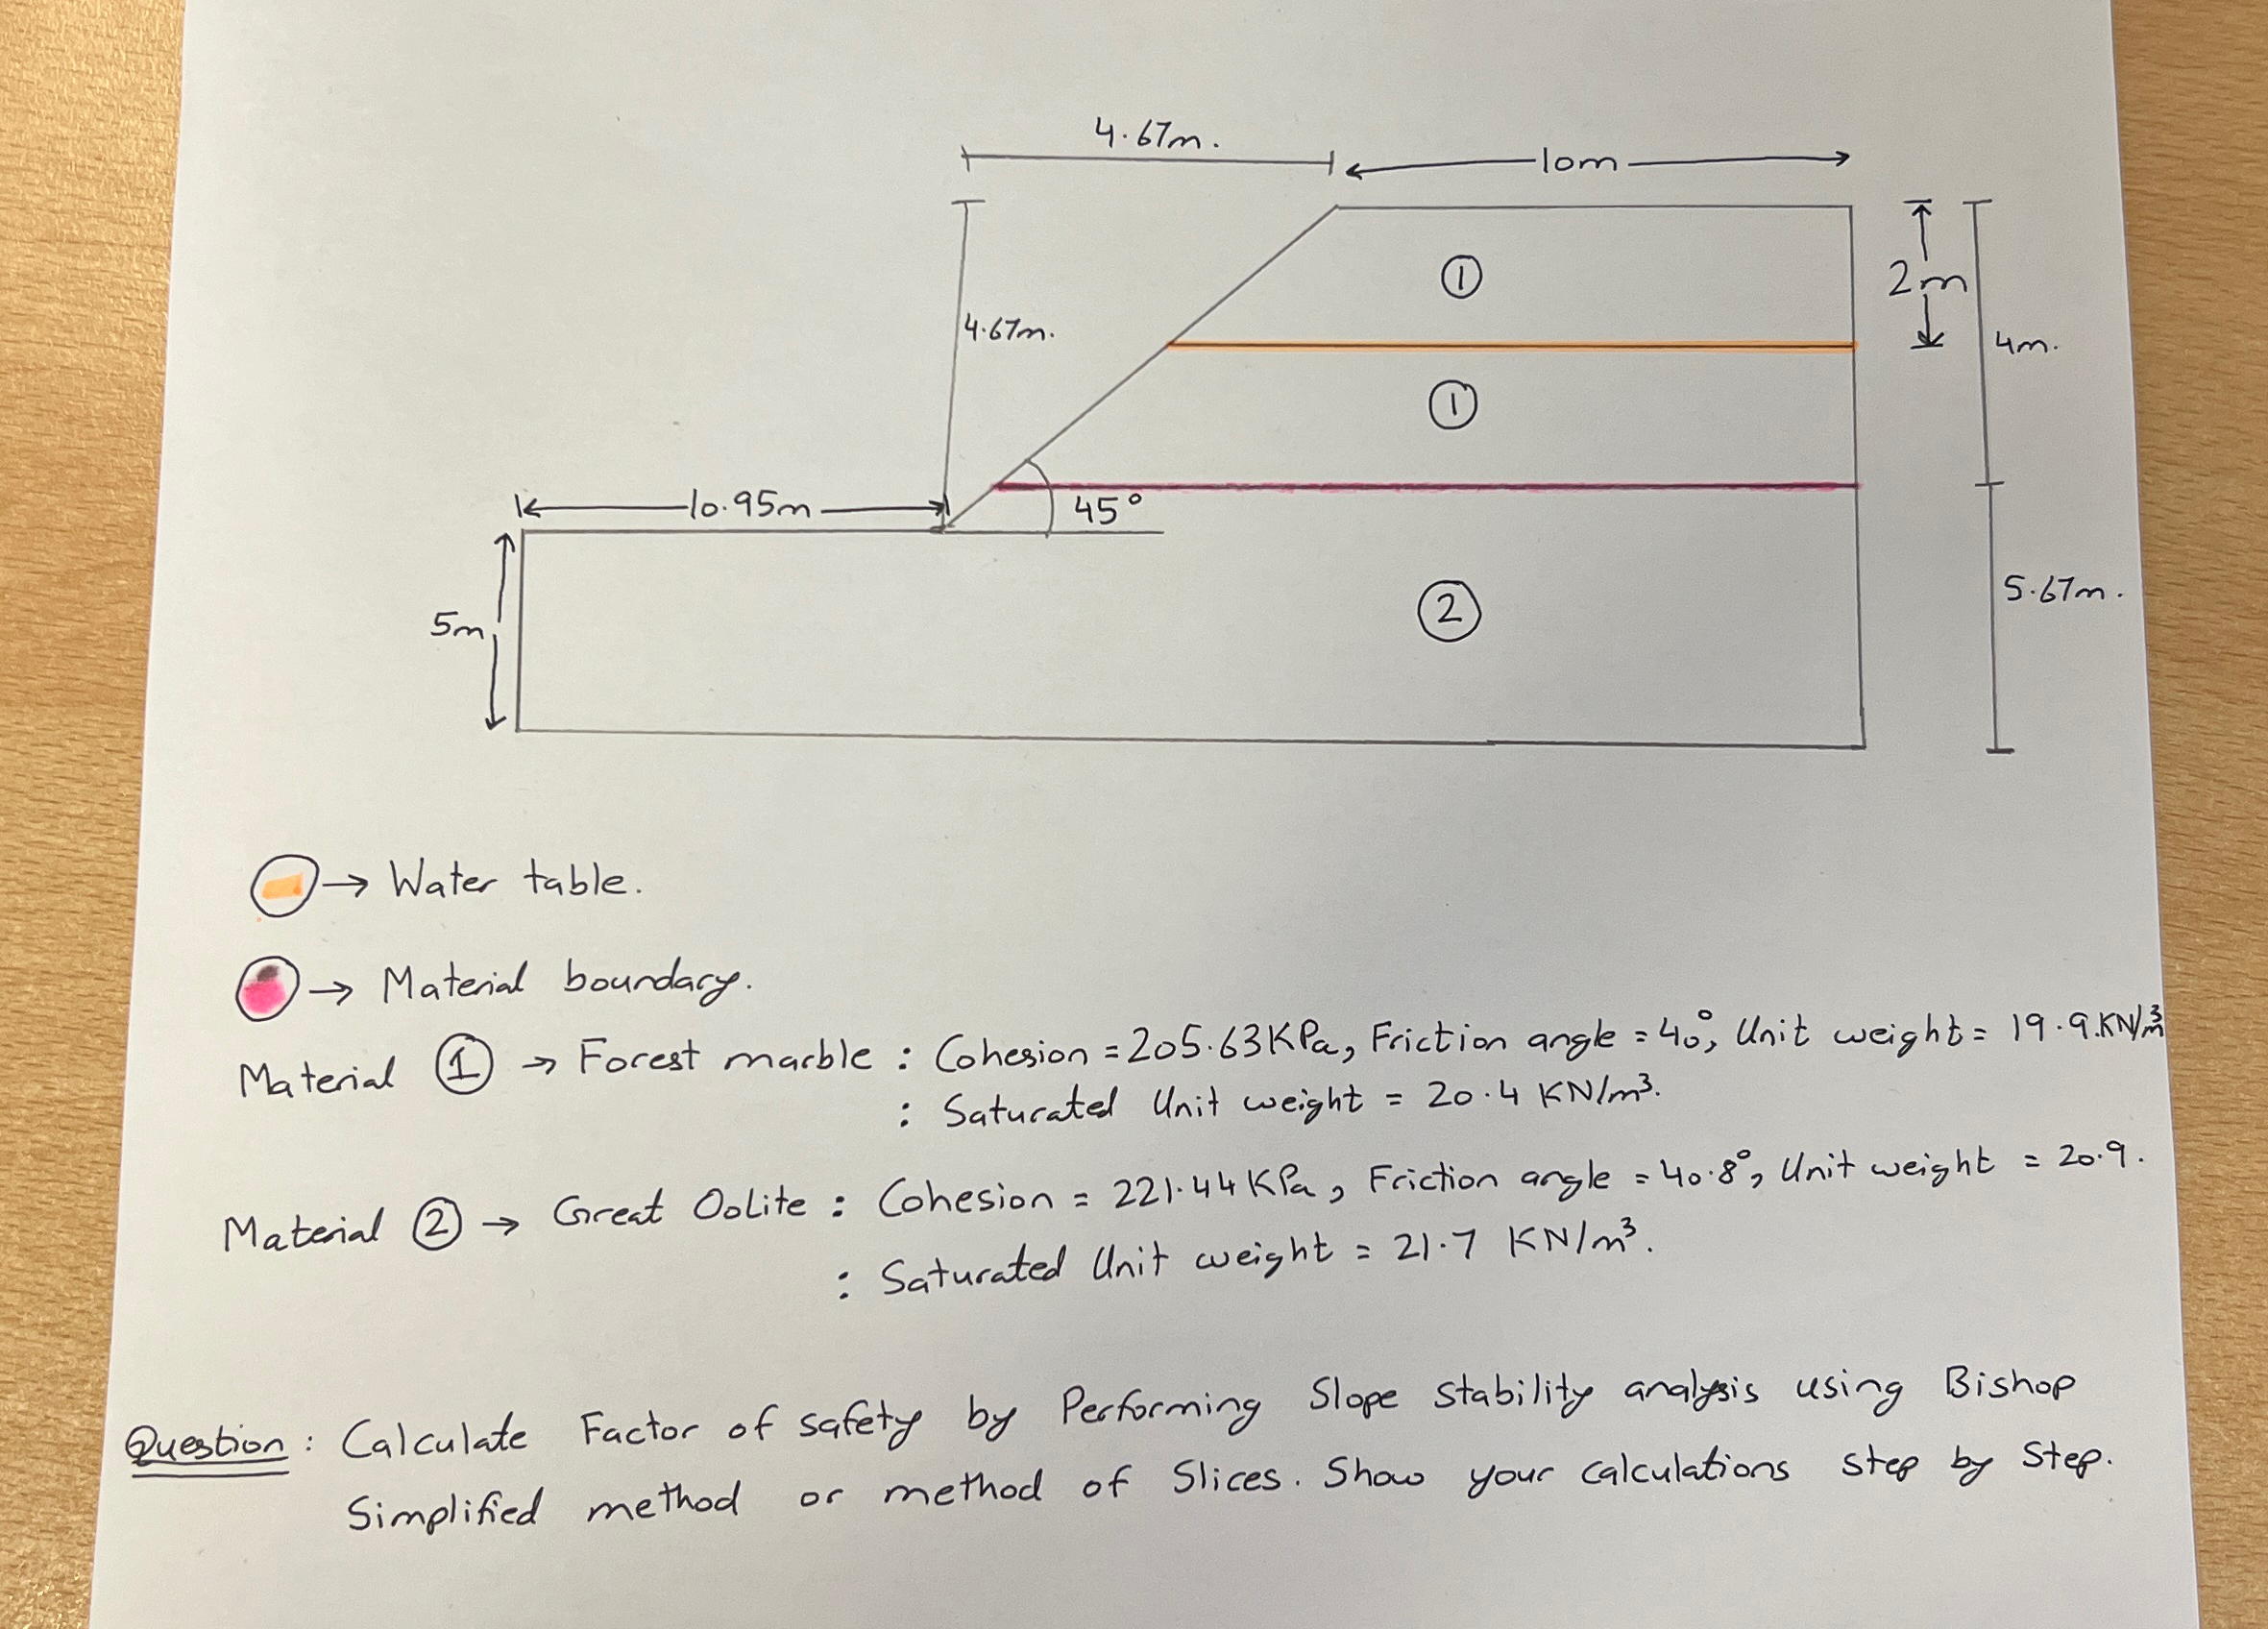 4.67m.
10m
①
2m
4.67m.
4m.
①
10.95m
45°
5m
②
5.67m.
→ Water table.
→ Material boundary.
Material ① → Forest marble : Cohesion = 205.63 KPa, Friction angle = 40°, Unit weight = 19.9.KN/m³
: Saturated Unit weight = 20.4 KN/m³.
Material ② → Great Oolite : Cohesion = 221.44 KPa, Friction angle = 40.8°, Unit weight = 20.9.
: Saturated Unit weight = 21.7 KN/m³.
Question : Calculate Factor of safety by Performing Slope stability analysis using Bishop
Simplified method or method of Slices. Show your calculations step by Step.